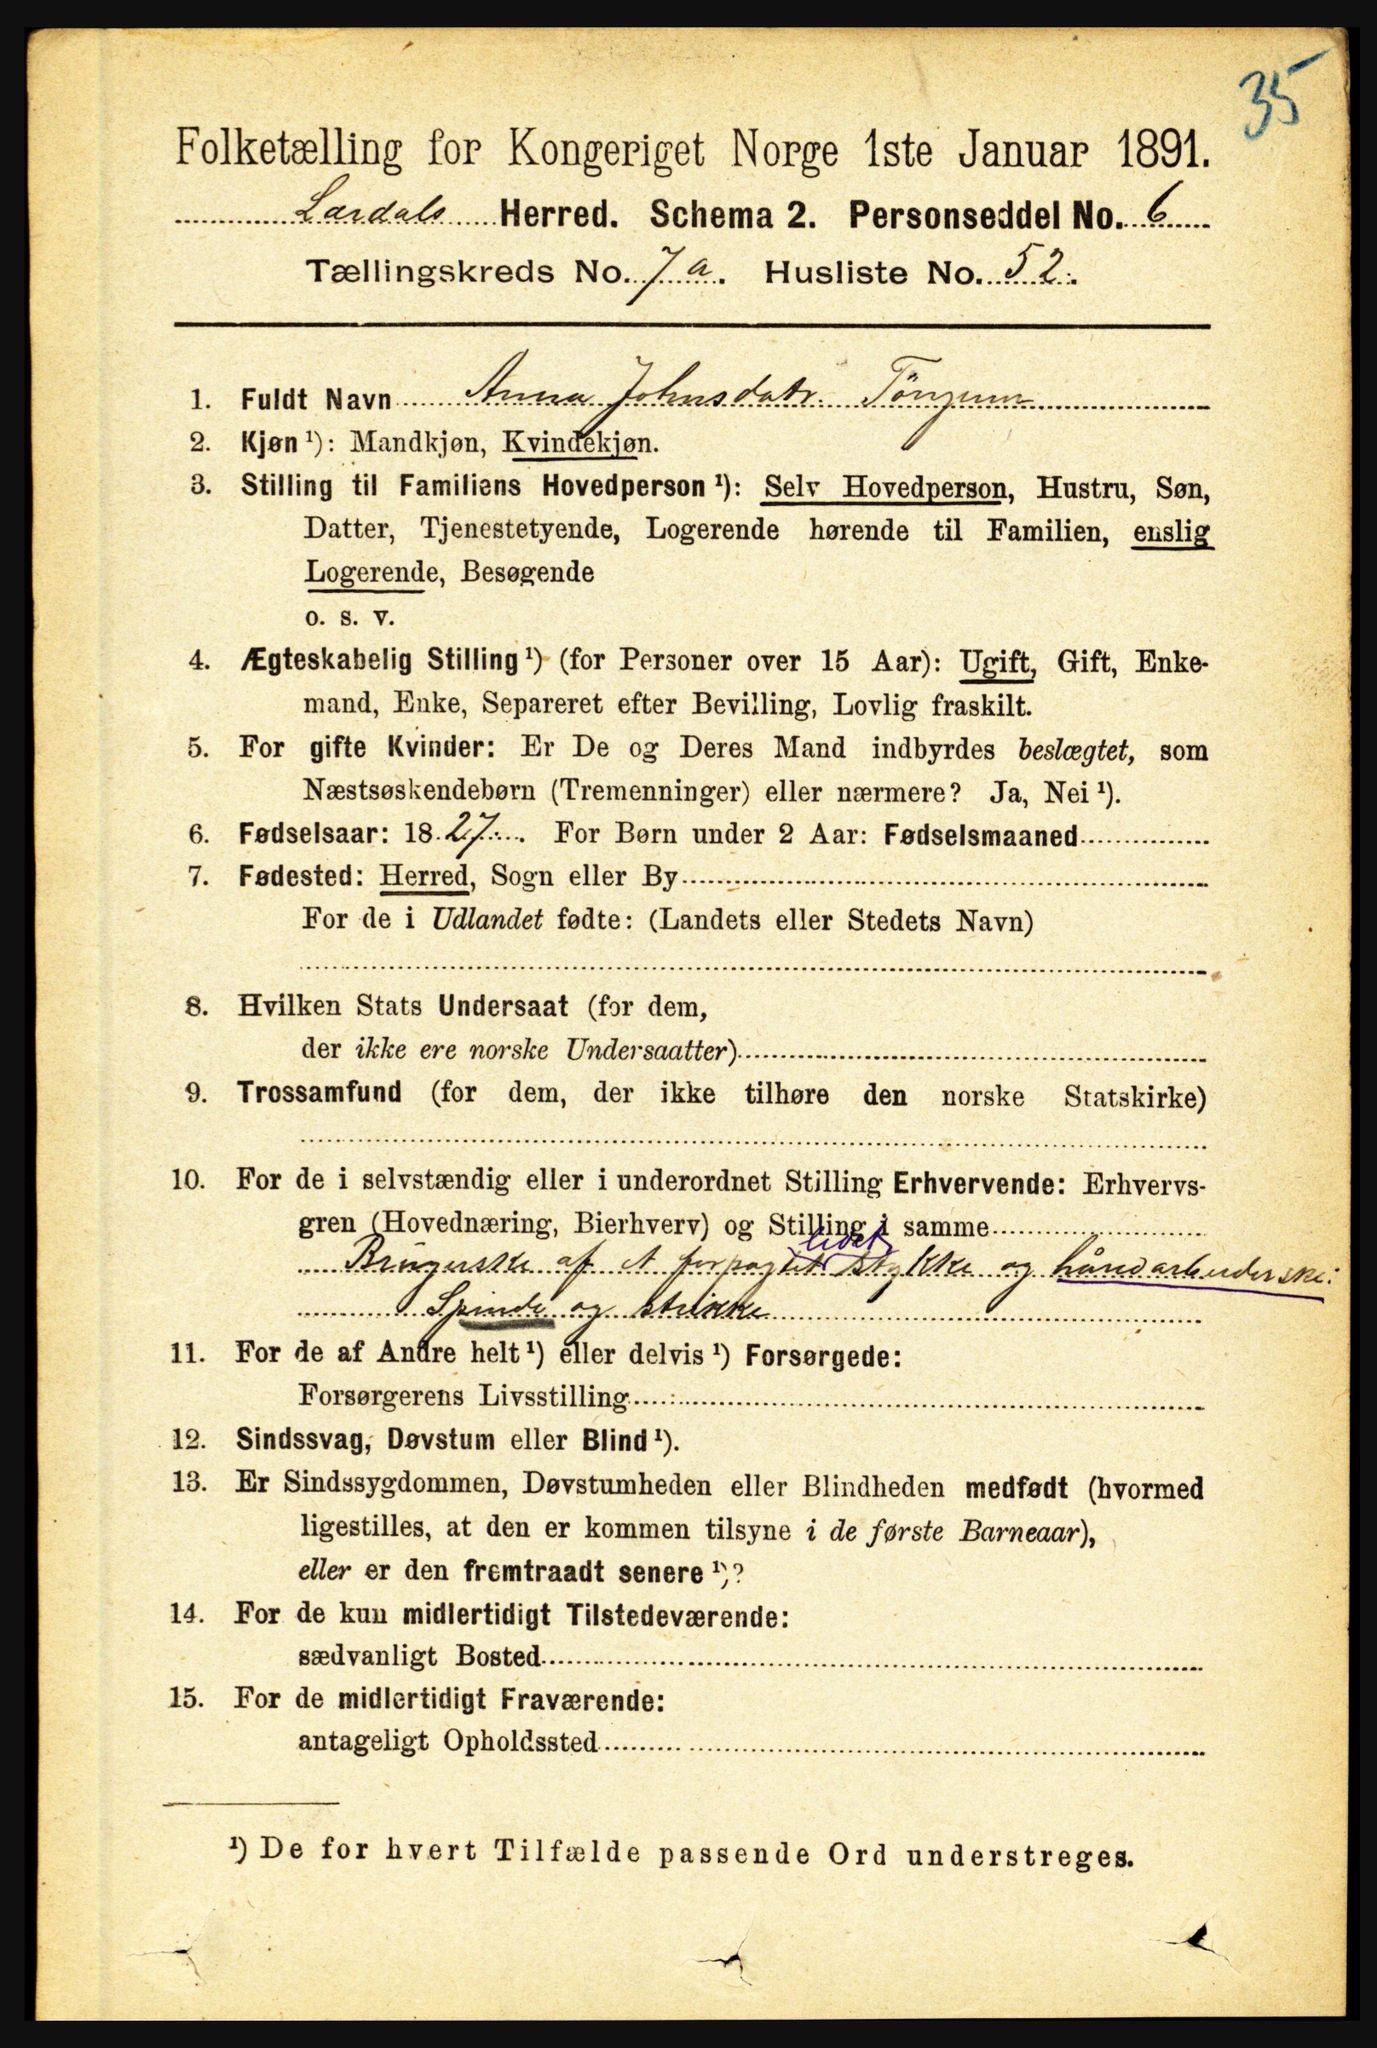 35
Folketælling for Kongeriget Norge 1ste Januar 1891.
Lærdals Herred. Schema 2. Personseddel No. 6
Tællingskreds No. 7a. Husliste No. 52.
1. Fuldt Navn Anna Johnsdatr. Tönjum
2. Kjøn ¹): Mandkjøn, Kvindekjøn.
3. Stilling til Familiens Hovedperson ¹): Selv Hovedperson, Hustru, Søn,
Datter, Tjenestetyende, Logerende hørende til Familien, enslig
Logerende, Besøgende
o. s. v.
4. Ægteskabelig Stilling ¹) (for Personer over 15 Aar): Ugift, Gift, Enke-
mand, Enke, Separeret efter Bevilling, Lovlig fraskilt.
5. For gifte Kvinder: Er De og Deres Mand indbyrdes beslægtet, som
Næstsøskendebørn (Tremenninger) eller nærmere? Ja, Nei ¹).
6. Fødselsaar: 1827. For Børn under 2 Aar: Fødselsmaaned
7. Fødested: Herred, Sogn eller By
For de i Udlandet fødte: (Landets eller Stedets Navn)
8. Hvilken Stats Undersaat (for dem,
der ikke ere norske Undersaatter)
9. Trossamfund (for dem, der ikke tilhøre den norske Statskirke)
10. For de i selvstændig eller i underordnet Stilling Erhvervende: Erhvervs-
gren (Hovednæring, Bierhverv) og Stilling i samme
lidet
Brugerske af et forpagtet stykke og håndarbeiderske:
Spinde og strikke
11. For de af Andre helt ¹) eller delvis ¹) Forsørgede:
Forsørgerens Livsstilling
12. Sindssvag, Døvstum eller Blind ¹).
13. Er Sindssygdommen, Døvstumheden eller Blindheden medfødt (hvormed
ligestilles, at den er kommen tilsyne i de første Barneaar),
eller er den fremtraadt senere ¹)?
14. For de kun midlertidigt Tilstedeværende:
sædvanligt Bosted
15. For de midlertidigt Fraværende:
antageligt Opholdssted
¹) De for hvert Tilfælde passende Ord understreges.